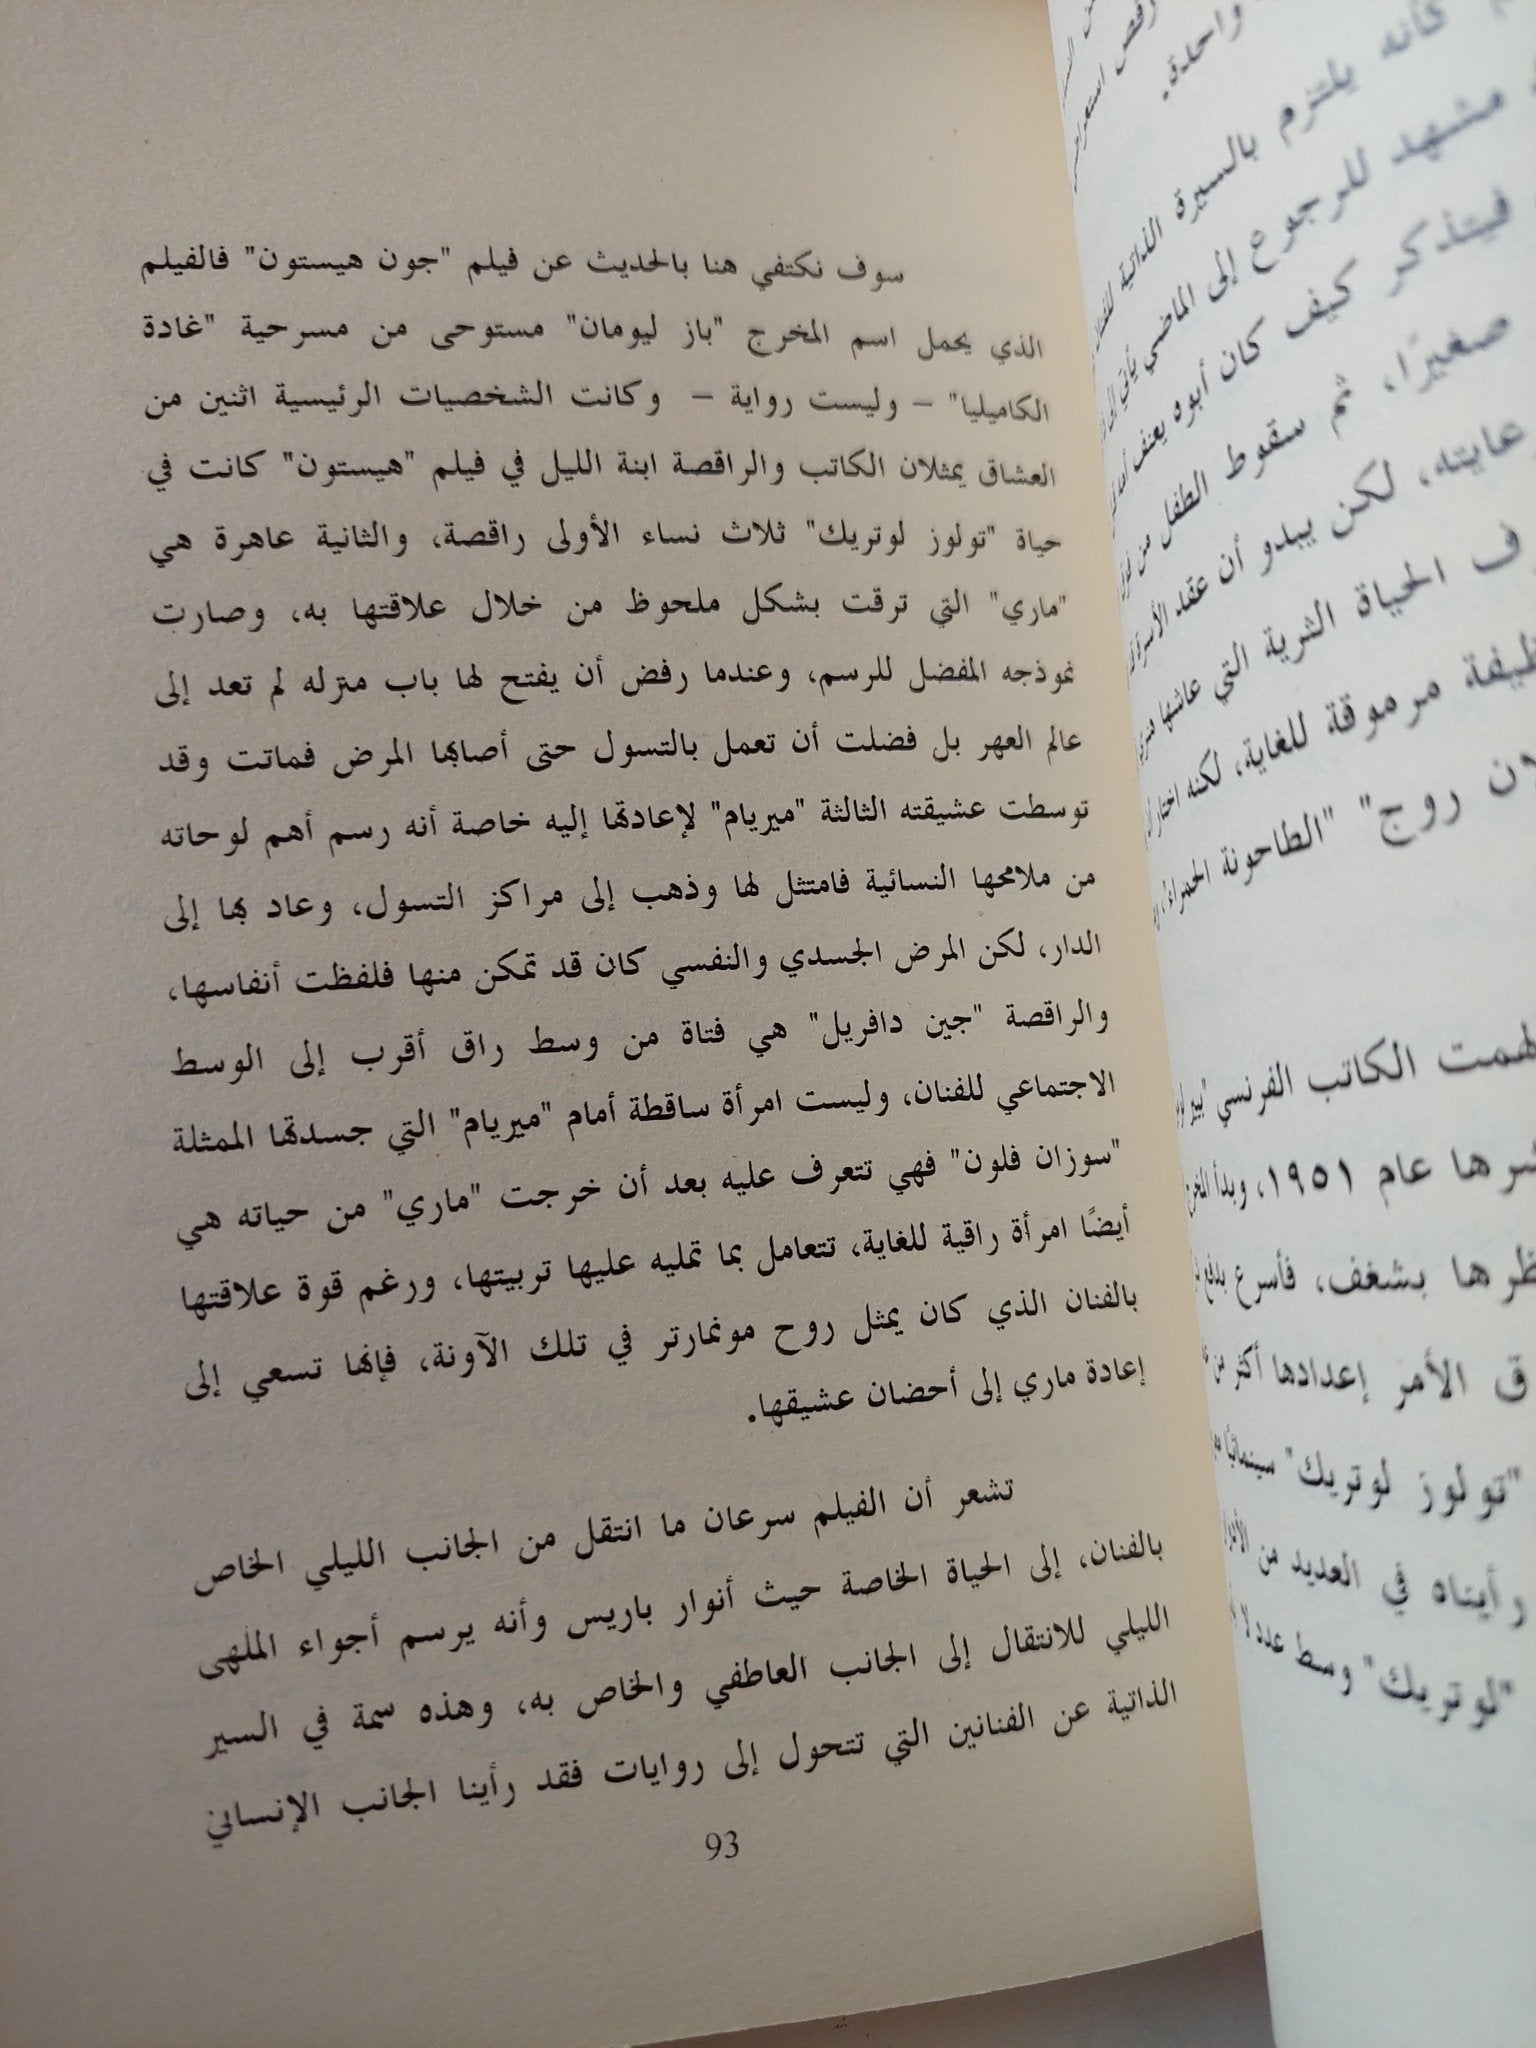 سوف نكتفي هنا بالحديث عن فيلم "جون هيستون" فالفيلم
الذي يحمل اسم المخرج "باز ليومان" مستوحى من مسرحية "غادة
الكاميليا" – وليست رواية – وكانت الشخصيات الرئيسية اثنين من
العشاق يمثلان الكاتب والراقصة ابنة الليل في فيلم "هيستون" كانت في
حياة "تولوز لوتريك" ثلاث نساء الأولى راقصة، والثانية عاهرة هي
"ماري" التي ترقت بشكل ملحوظ من خلال علاقتها به، وصارت
نموذجه المفضل للرسم، وعندما رفض أن يفتح لها باب منزله لم تعد إلى
عالم العهر بل فضلت أن تعمل بالتسول حتى أصابها المرض فماتت وقد
توسطت عشيقته الثالثة "ميريام" لإعادتها إليه خاصة أنه رسم أهم لوحاته
من ملامحها النسائية فامتثل لها وذهب إلى مراكز التسول، وعاد بها إلى
الدار، لكن المرض الجسدي والنفسي كان قد تمكن منها فلفظت أنفاسها،
والراقصة "جين دافريل" هي فتاة من وسط راق أقرب إلى الوسط
الاجتماعي للفنان، وليست امرأة ساقطة أمام "ميريام" التي جسدتها الممثلة
"سوزان فلون" فهي تتعرف عليه بعد أن خرجت "ماري" من حياته هي
أيضًا امرأة راقية للغاية، تتعامل بما تمليه عليها تربيتها، ورغم قوة علاقتها
بالفنان الذي كان يمثل روح مونمارتر في تلك الآونة، فإنها تسعي إلى
إعادة ماري إلى أحضان عشيقها.
تشعر أن الفيلم سرعان ما انتقل من الجانب الليلي الخاص
بالفنان، إلى الحياة الخاصة حيث أنوار باريس وأنه يرسم أجواء الملهى
الليلي للانتقال إلى الجانب العاطفي والخاص به، وهذه سمة في السير
الذاتية عن الفنانين التي تتحول إلى روايات فقد رأينا الجانب الإنساني
93
واحدة.
كأنه يلتزم بالسيرة الذاتية
مشهد للرجوع إلى الماضي يأتي
فيتذكر كيف كان أبوه يعنف
صغيرًا، ثم سقوط الطفل من
لكن يبدو أن عقد الأسرة
الحياة الثرية التي عاشها
مرموقة للغاية، لكنه اختار
روج" "الطاحونة الحمراء"
الكاتب الفرنسي "بيير
عام ١٩٥١، وبدأ المخرج
بشغف، فأسرع يدفع
الأمر إعدادها أكثر من
"تولوز لوتريك" سينمائيًا
رأيناه في العديد من
"لوتريك" وسط عدد لا